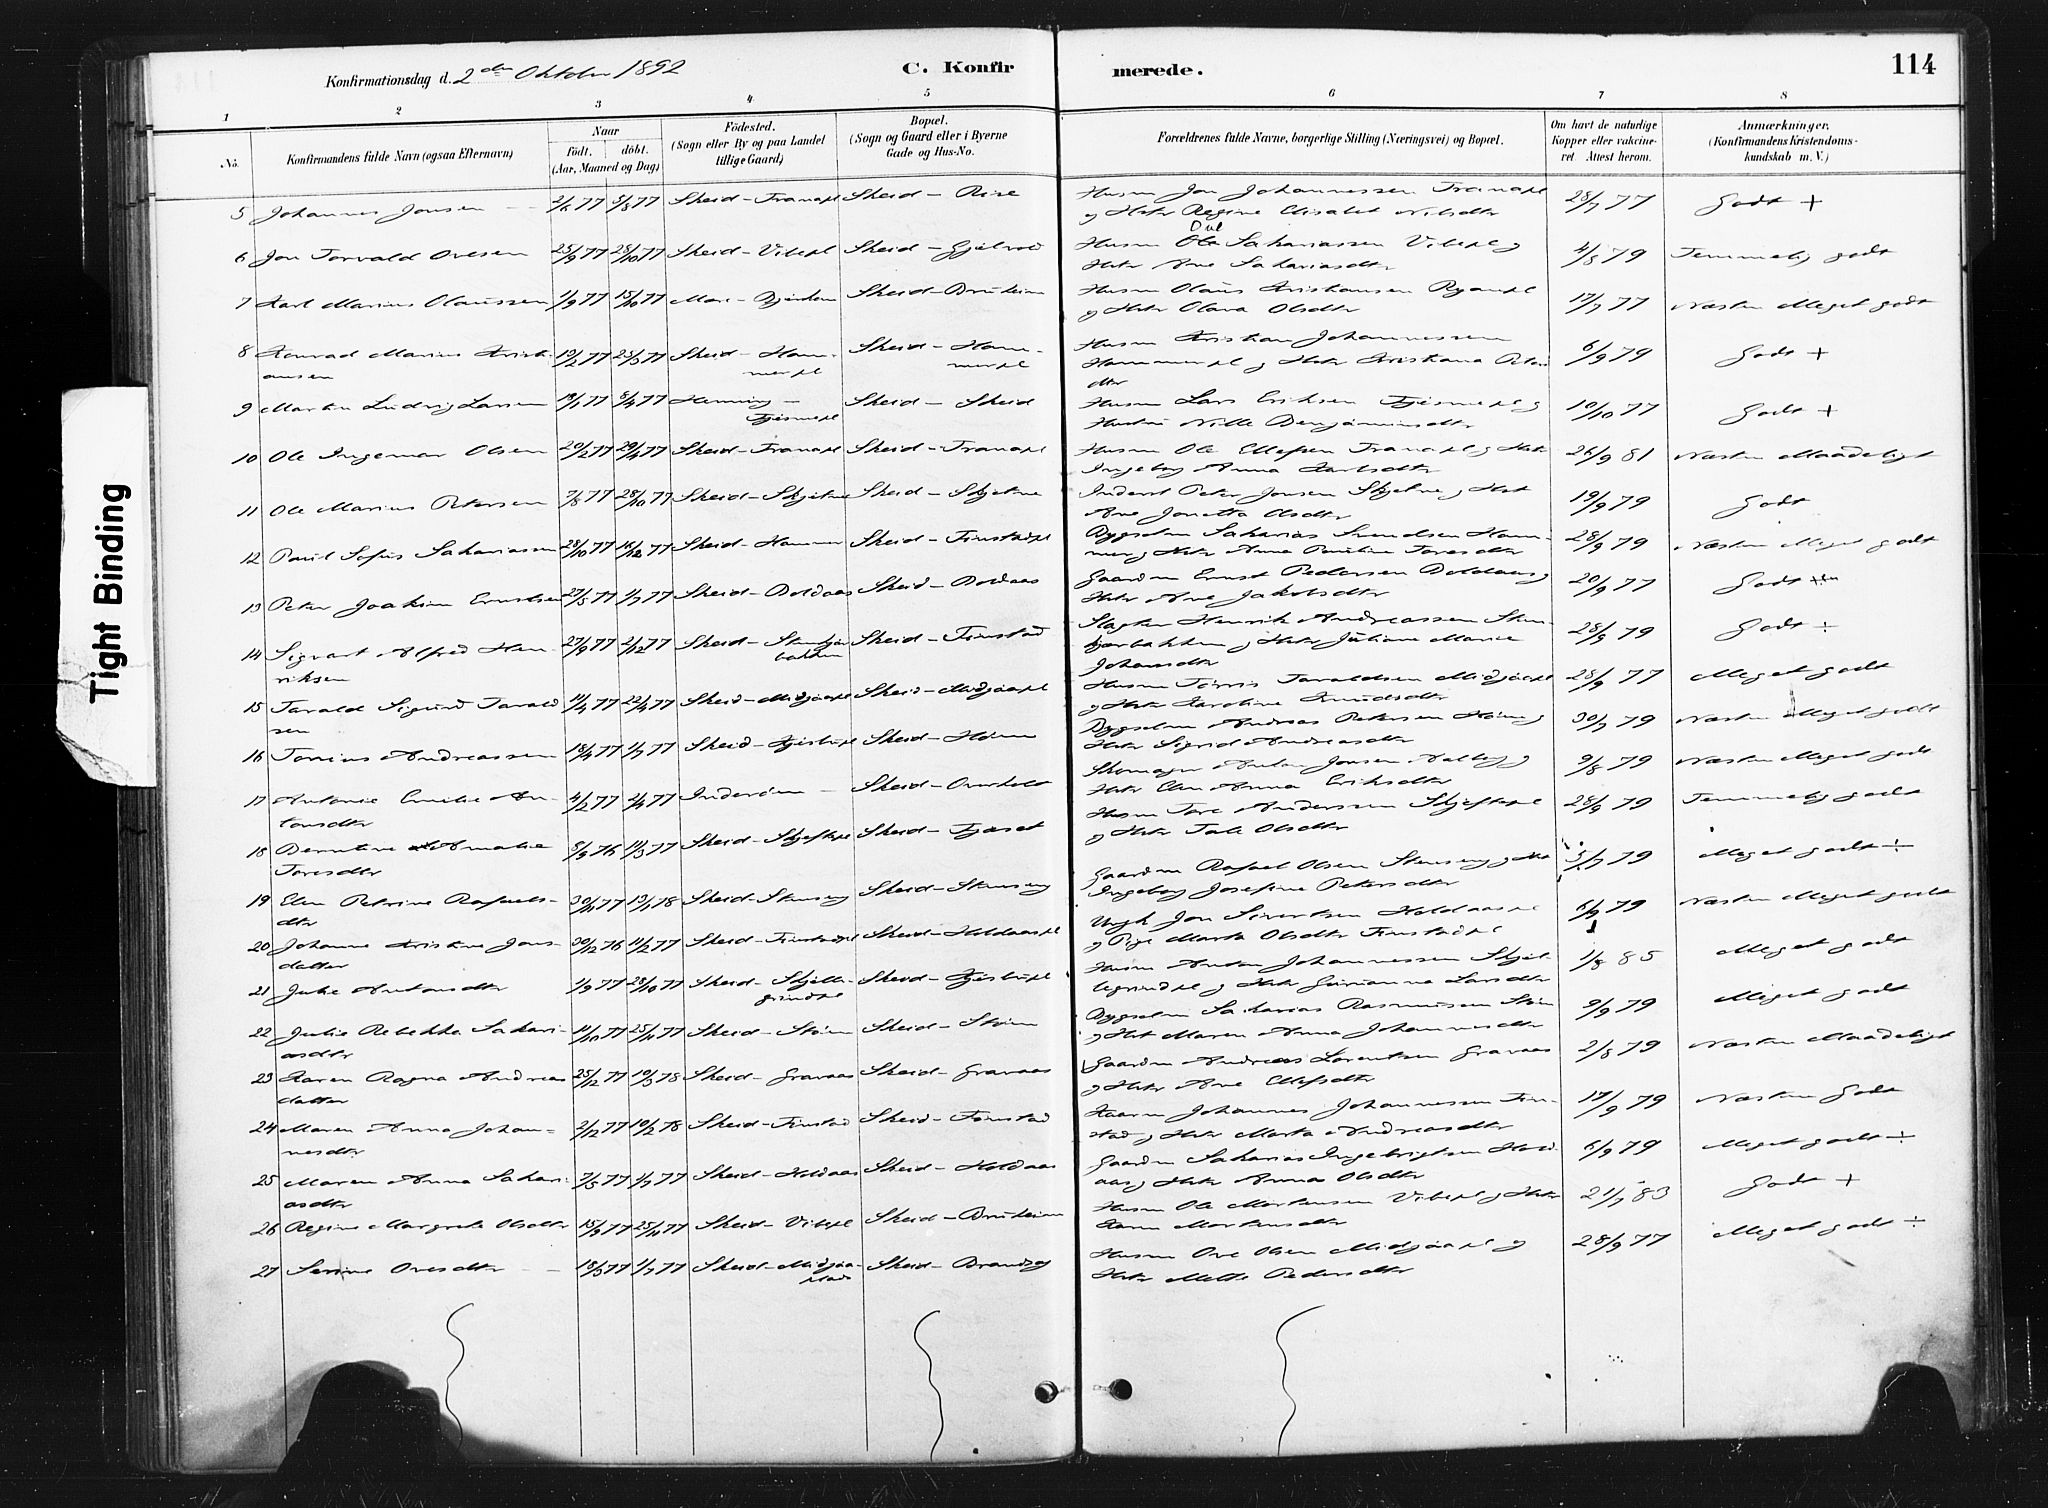 Konfirmationsdag d. 2den Oktober 1892
C. Konfir
merede.
114
1 2 3 4 5 6 7 8
No.
Konfirmandens fulde Navn (ogsaa Efternavn)
Naar
födt. döbt.
(Aar, Maaned og Dag)
Födested.
(Sogn eller By og paa Landet
tillige Gaard)
Bopæl.
(Sogn og Gaard eller i Byerne
Gade og Hus-No.
Forældrenes fulde Navne, borgerlige Stilling (Næringsvei) og Bopæl.
Om havt de naturlige
Kopper eller vakcine-
ret Attest herom.
Anmærkninger.
(Konfirmandens Kristendoms-
kundskab m. V.)
5 Johannes Jonsen 2/6 77 5/8 77 Skeid - Tranapl Skeid - Rise
Husm Jon Johannessen Tranapl
og Hstr Regine Elisabet Nilsdtr
28/7 77 Godt +
6 Jon Torvald Olesen 25/9 77 28/10 77 Skeid - Vibepl Skeid - Gjelvold
Husm Ole Sakariassen Vibepl og
Hstr Ane Sakariasdtr
4/8 79 Temmelig godt
7 Karl Marius Olaussen 1/9 77 15/10 77 Skeid - Bruheim
Husm Olaus Kristiansen
og Hstr Olava Olsdtr
17/7 77 Næsten Meget godt
8 Konrad Marius Kristi-
ansen 19/2 77 25/3 77 Skeid - Ham-
merpl Skeid - Ham-
merpl
Husm Kristian Johannessen
Hammerpl og Hstr Kristiana
dtr
6/9 79 Godt +
9 Martin Ludvig Larsen 8/4 77 Henning - Skeid - Skeid
Husm Lars Eriksen
Hustru Nille Benjaminsdtr
10/10 77 Godt +
10 Ole Ingemar Olsen 20/2 77 29/4 77 Skeid - Tranapl Skeid - Tranapl
Husm Ole Ellefsen Tranapl og Hstr
Ingeborg Anna
26/9 81 Næsten Maadeligt
11 Ole Marius Petersen 7/8 77 28/10 77 Skeid - Skjelne Skeid - Skjelne
Inderst Peter Jonsen Skjelne og Hst
Ane Jonetta Olsdtr
19/9 79 Godt
12 Paul Sofus Sakariassen 28/10 77 16/12 77 Skeid - Hammer Skeid - Finstadpl
Bygselm Sakarias Svendsen Ham-
mer og Hstr Anna Pauline Toresdtr
28/9 79 Næsten Meget godt
13 Peter Joakim Ernstsen 27/5 77 1/7 77 Skeid - Boldaas Skeid - Boldaas
Gaardm Ernst Pedersen Boldaas og
Hstr Ane Jakobsdtr
20/9 77 Godt
14 Sigvart Alfred Hen-
riksen 27/9 77 2/12 77 Skeid - Skeid - Finstad
Slagter Henrik Andreassen
og Hstr Juliane Marie
Johansdtr
28/9 79 Godt ÷
15 Tarald Sigurd Tarald
sen 11/4 77 22/4 77 Skeid - Midjaapl Skeid - Midjaapl
Husm Taraldsen Midjaapl
og Hstr Karoline Knudsdtr
28/9 77 Meget godt
16 Tonius Andreassen 18/4 77 1/7 77 Skeid - Skeid - Høim
Bygselm Andreas Petersen Høim og
Hstr Sigrid Andreasdtr
30/7 79 Næsten Meget godt
17 Antonie Emilie An-
tonsdtr 4/2 77 2/4 77 Inderøen - Skeid - Overholt
Skomager Anton Jonsen Aalberg og
Hstr Elen Anna Eriksdtr
9/8 79 Næsten Meget godt
18 Berntine Amalie
Toresdtr 8/9 76 11/3 77 Skeid - Skjeftepl Skeid - Fjæset
Husm Tore Anderssen Skjeftepl
og Hstr Olsdtr
28/9 79 Temmelig godt
19 Elen Petrine Rafaels-
dtr 30/11 77 13/1 78 Skeid - Stenseng Skeid - Stenseng
Gaardm Rafael Olsen Stenseng og Hst
Ingeborg Josefine Petersdtr
5/7 79 Meget godt ÷
20 Johanne Kristine Jons-
datter 30/12 76 11/2 77 Skeid - Finstadpl Skeid - Holdaaspl
Ungk Jon Sivertsen Holdaaspl
og Pige Marta Olsdtr Finstadpl
6/9 79 Næsten Meget godt
21 Julie Antonsdtr 1/9 77 28/10 77 Skeid - Skjelle-
grindpl Skeid -
Husm Anton Johannessen Skjel-
legrindpl og Hstr Gurianna Larsdtr
1/8 85 Meget godt
22 Julie Rebekka Sakari-
asdtr 11/10 77 25/11 77 Skeid - Støim Skeid - Støim
Bygselm Sakarias Rasmussen Støim
og Hst Maren Anna Johannesdtr
9/9 79 Meget godt
23 Karen Ragna Andreas
datter 25/12 77 10/3 78 Skeid - Gravaas Skeid - Gravaas
Gaardm Andreas Lorentsen Gravaas
og Hstr Ane Ellefsdtr
2/8 79 Næsten Maadeligt
24 Maren Anna Johan-
nesdtr 2/12 77 10/2 78 Skeid - Finstad Skeid - Finstad
Johannes Johannessen Fin-
stad og Hstr Marta Andreasdtr
17/9 79 Næsten Godt
25 Maren Anna Sakari-
asdtr 7/5 77 1/7 77 Skeid - Holdaas Skeid - Holdaas
Gaardm Sakarias Ingebrigtsen Hold-
aas og Hstr Anna Olsdtr
6/9 79 Meget godt ÷
26 Regine Margrete Olsdtr 15/9 77 25/11 77 Skeid - Vibepl Skeid - Bruheim
Husm Ole Mortensen Vibepl og Hstr
Karen Mortensdtr
21/7 83 Godt +
27 Serine Ovesdtr 18/5 77 1/7 77 Skeid - Midjaa-
plads Skeid - Brandseg
Husm Ove Olsen Midjaapl og
Hstr Mette Pedersdtr
28/9 77 Meget godt ÷
Tight Binding